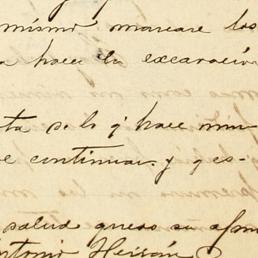 mismo marcare los
a hacer la excavación
ta solo q hace
e continuar y es-
salud quedo su afmo
Antonio Herrán